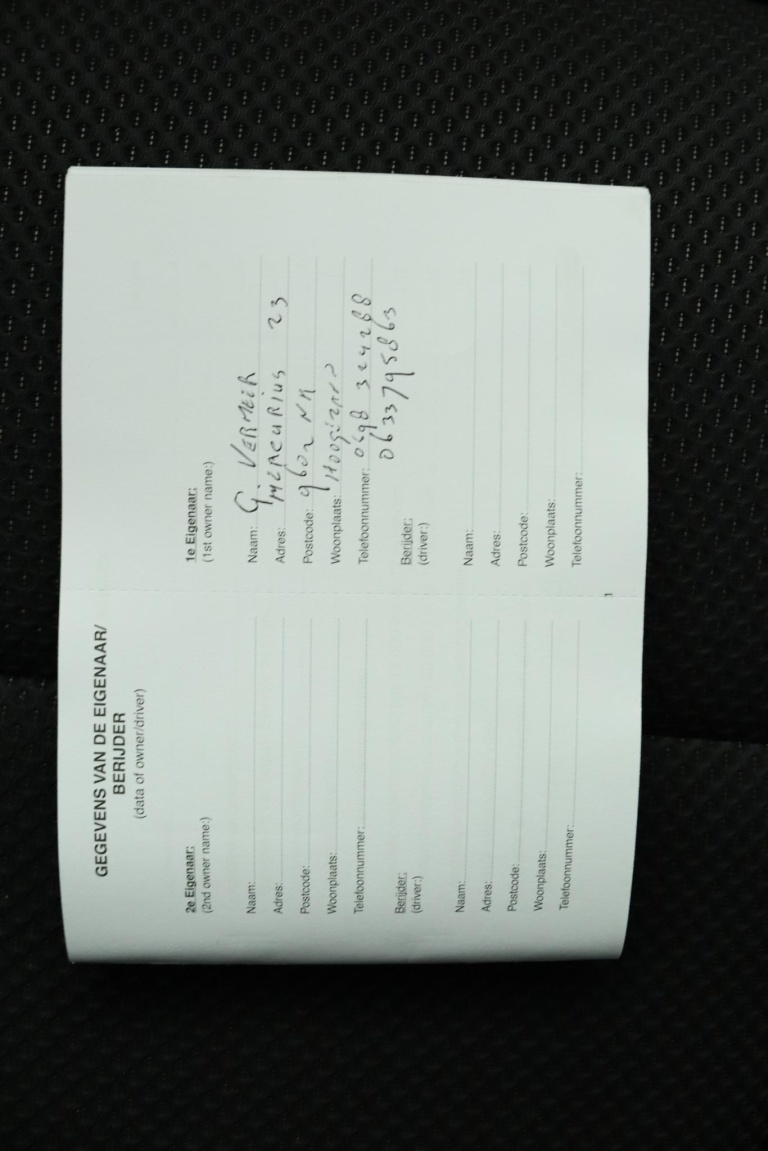 GEGEVENS VAN DE EIGENAAR/
BERIJDER
(data of owner/driver)
2e Eigenaar:
(2nd owner name:)
Naam:
Adres:
Postcode:
Woonplaats:
Telefoonnummer:
Berijder:
(driver:)
Naam:
Adres:
Postcode:
Woonplaats:
Telefoonnummer:
1e Eigenaar:
(1st owner name:)
Naam: G. VERMEIR
Adres: MERCURIUS 23
Postcode: 9602
Woonplaats:
Telefoonnummer: 0698 324288
0633795863
Berijder:
(driver:)
Naam:
Adres:
Postcode:
Woonplaats:
Telefoonnummer:
1